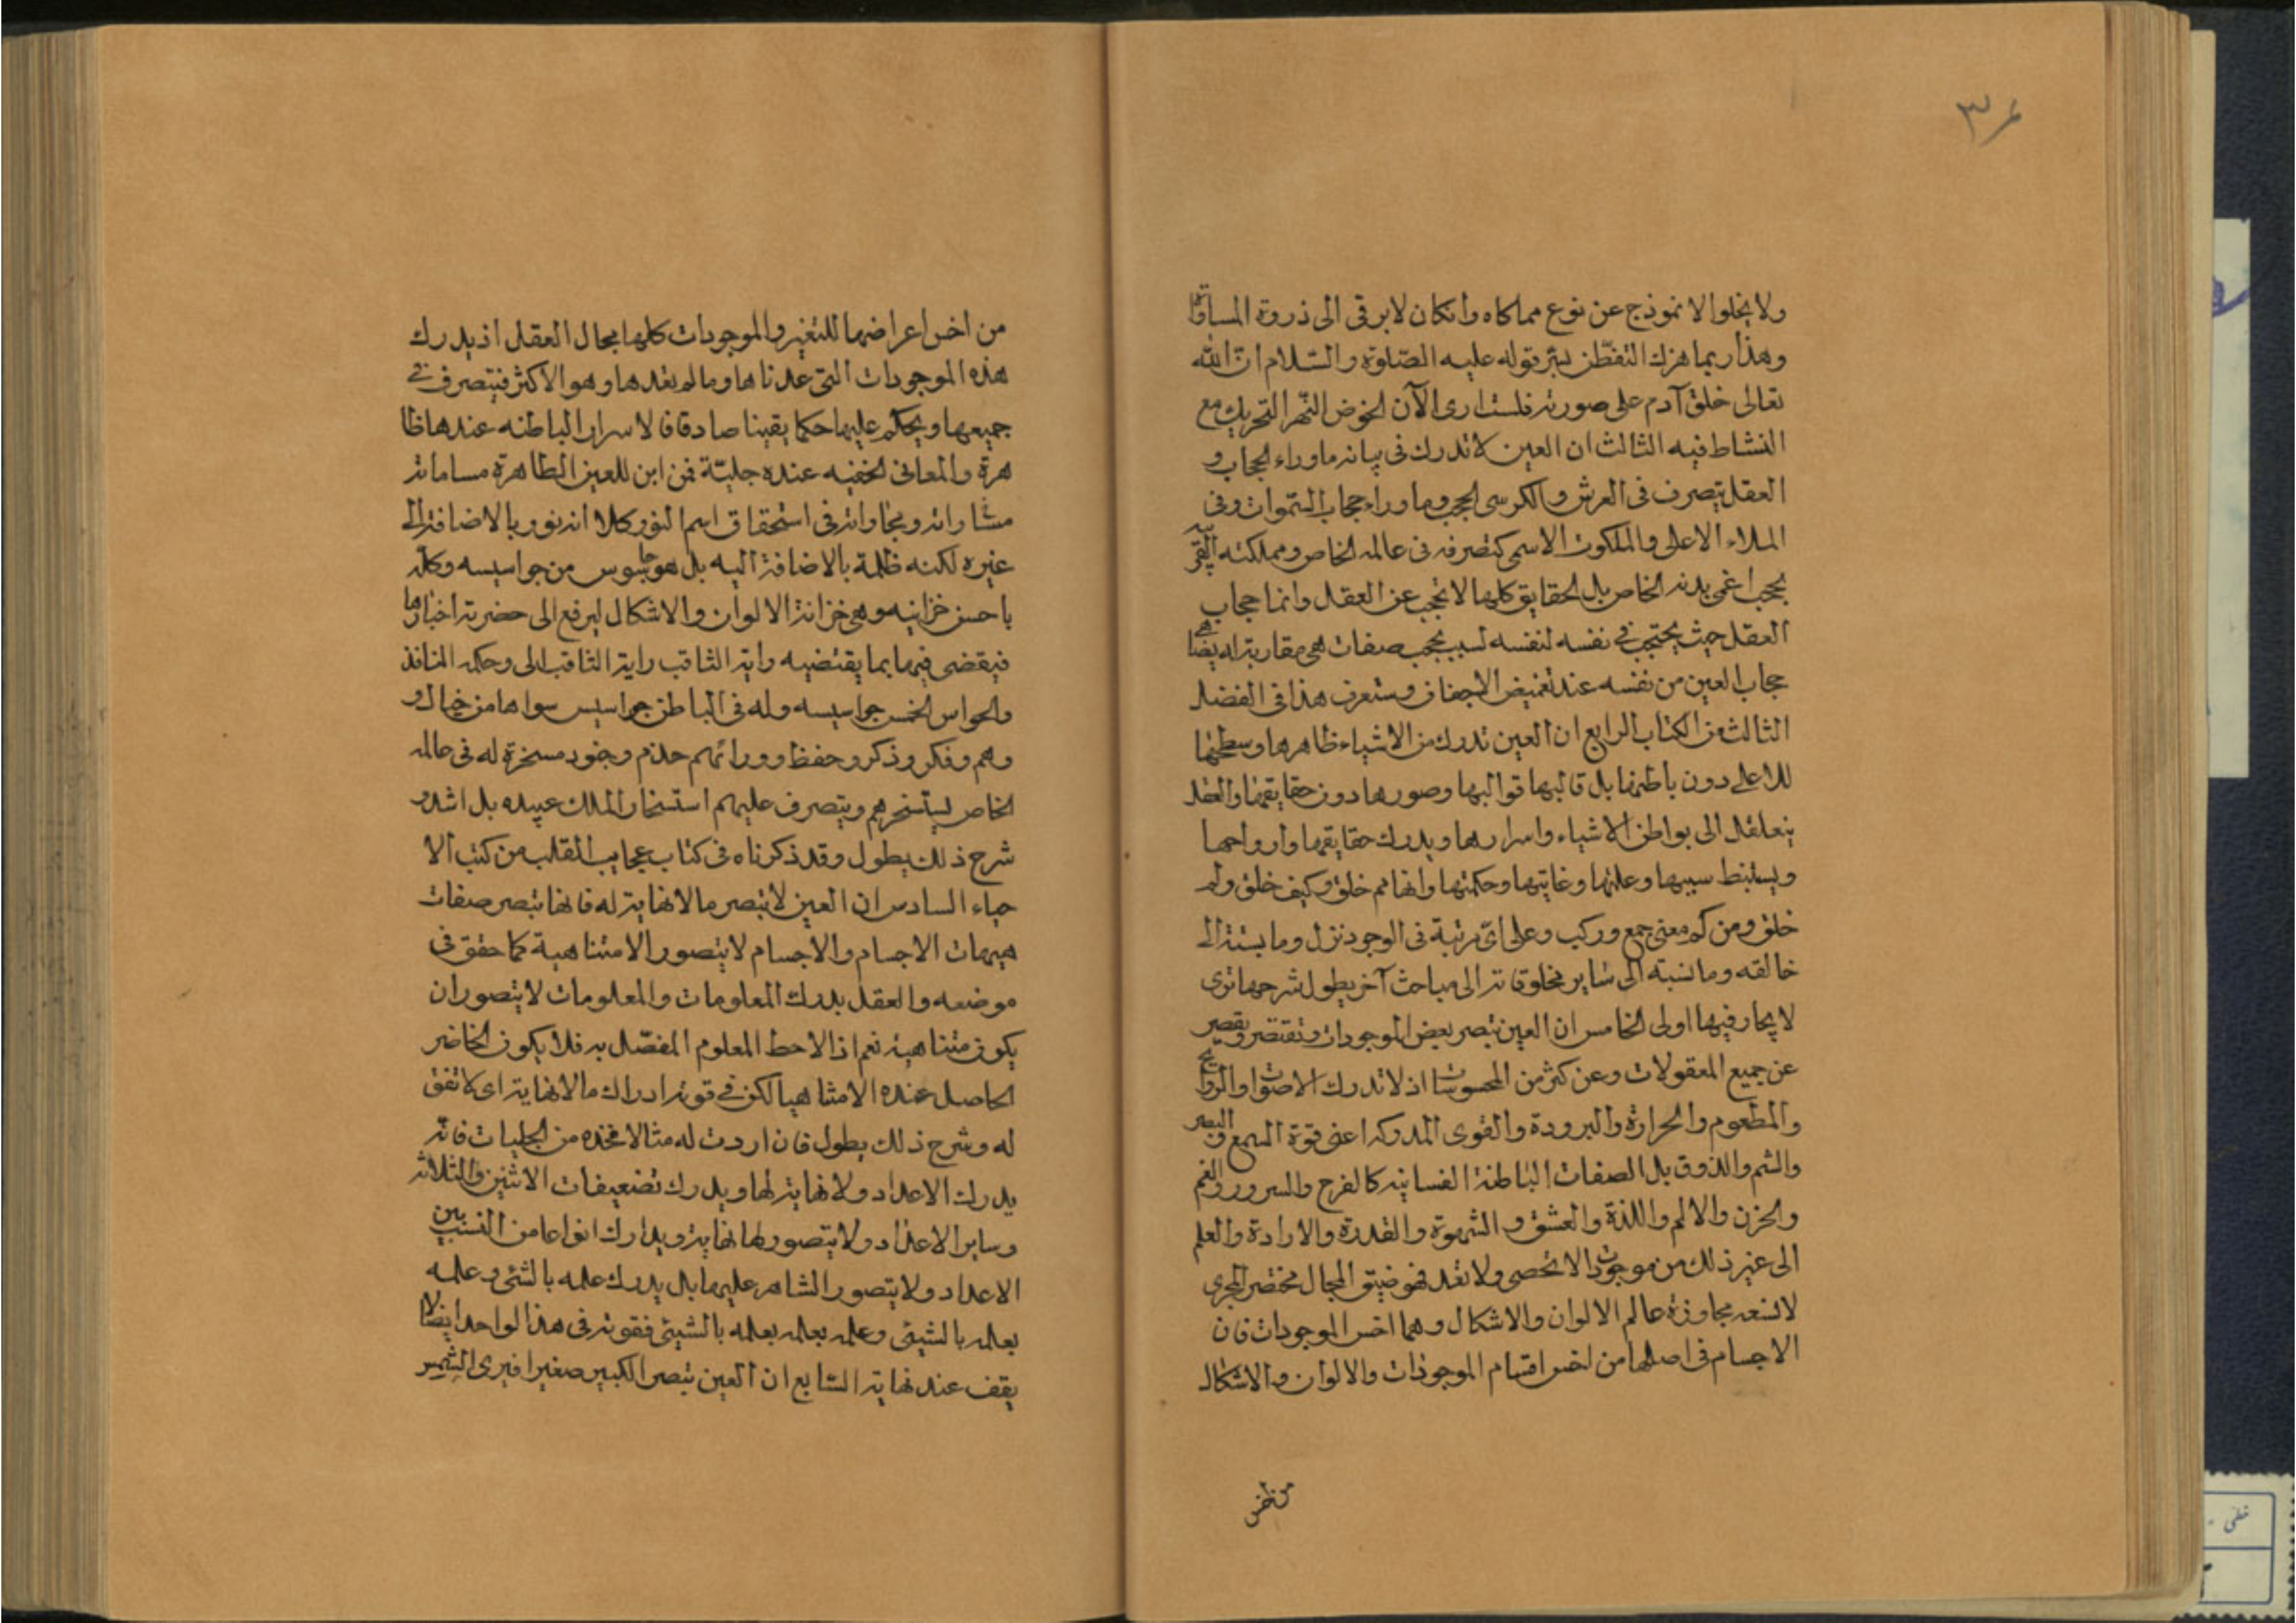 ۳۶
ولا يخلوا الانموذج عن نوع مماكاه وانكان لا يرقى الى ذروة المساواة
وهذا ربما هزك التفطّن لسرّ قوله عليه الصّلوة والسّلام انّ الله
تعالى خلق آدم على صورته فلست ارى الآن الخوض النّهر التحريك مع
النشاط فيه الثالث ان العين لا تدرك فى بيانه ما وراء الحجاب و
العقل يتصرف فى العرش والكرسى الحجب وما وراء حجاب السّموات وفى
الملاء الاعلى والملكوت الاسمى كتصرفه فى عالمه الخاص ومملكته القريبة
بحجب اغى بدنه الخاص بل الحقايق كلها لا تحجب عن العقل وانما حجاب
العقل حيث يحتجب فى نفسه لنفسه لسبب بحجب صفات هى مقاربة له يضاهى
حجاب العين من نفسه عند تغميض الاجفان وستعرف هذا فى الفضل
الثالث من الكتاب الرابع ان العين تدرك من الاشياء ظاهرها وسطحها
للاعلى دون باطنها بل قالبها قوالبها وصورها دون حقايقها والعقل
يتغلغل الى بواطن الاشياء واسرارها ويدرك حقايقها وارواحها
ويستنبط سببها وعلتها وغايتها وحكمتها وانها مم خلق وكيف خلق ولم
خلق ومن كم معنى جمع وركب وعلى اىّ مرتبة فى الوجود نزل وما نسبته الى
خالقه وما نسبته الى ساير مخلوقاته الى مباحث آخر يطول شرحها نرى
لا يحار فيها اولى الخامس ان العين تبصر بعض الموجودات وتقتصر ويقصر
عن جميع المعقولات وعن كثر من المحسوسات اذ لا تدرك الاصوات والروايح
والمطعوم والحرارة والبرودة والقوى المدركه اعنى قوة السمع والبصر
والشم والذوق بل الصفات الباطنة الفسانيه كالفرح والسرور والغم
والحزن والالم واللذة والعشق والشهوة والقدرة والارادة والعلم
الى غير ذلك من موجودات لا تحصى ولا تعد فهو ضيق المجال مختصر المجرى
لا تسعه مجاوزة عالم الالوان والاشكال وهما اخس الموجودات فان
الاجسام فى اصلها من اخس اقسام الموجودات والالوان والاشكال
من اخس اعراضها للتغير والموجودات كلها مجال العقل اذ يدرك
هذه الموجودات التى عدناها وما لم نعدها وهو الاكثر فيتصرف فى
جميعها ويحكم عليها حكما يقينا صادقا فالاسرار الباطنه عندها ظا
هرة والمعانى الخفيه عنده جليّة فمن اين للعين الظاهرة مساماته
مشاراته ومجاواته فى استحقاق اسم النور كلا انه نور بالاضافة الى
غيره لكنه ظلمة بالاضافة اليه بل هو جاسوس من جواسيسه وكله
باحسن خزانيه وهى خزانة الالوان والاشكال ليرفع الى حضرته اخبارها
فيقضى فيها بما يقتضيه رايه الثاقب رايه الثاقب الى وحكمه النافذ
والحواس الخمس جواسيسه وله فى الباطن جواسيس سواها من خيال و
وهم وفكر وذكر وحفظ وورائهم خدم وجنود مسخرة له فى عالمه
الخاص ليستسخرهم ويتصرف عليهم استسخار الملك عبيده بل اشد و
شرح ذلك يطول وقد ذكرناه فى كتاب عجايب القلب من كتب الا
حياء السادس ان العين لا تبصر ما لا نهاية له فانها تبصر صفات
هيهات الاجسام والاجسام لا يتصور الا متناهية كما حقق فى
موضعه والعقل يدرك المعلومات والمعلومات لا يتصور ان
يكون متناهية نعم اذا لاحظ المعلوم المفصّل به فلا يكون الخاضر
الحاصل عنده الا متناهيا لكن فى قوته ادراك ما لا نهاية اى لا تفق
له وشرح ذلك يطول فان اردت له مثالا فخذه من الجليات فانّه
يدرك الاعداد ولا نهاية لها ويدرك تضعيفات الاثنين والثلاثه
وساير الاعداد ولا يتصور لها نهاية ويدارك انواعا من النسب بين
الاعداد ولا يتصور الشاهر عليها بل يدرك علمه بالشئ وعلمه
بعلمه بالشيئ وعلمه بعلمه بعلمه بالشيئ فقوته فى هذا الواحد ايضا لا
يقف عند نهاية السّابع ان العين تبصر الكبير صغيرا فيرى الشمس
من اخس
خطى